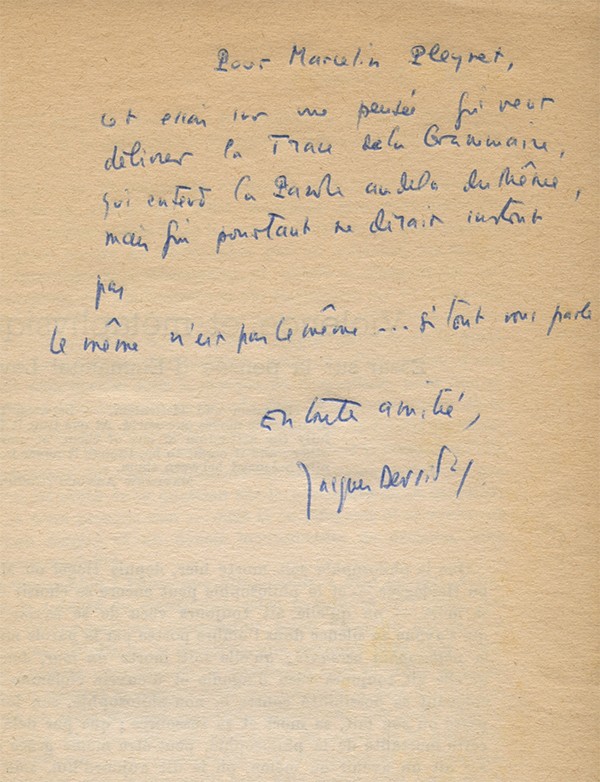 Pour Marcelin Pleynet,
cet essai sur une pensée qui veut
délivrer la Trace de la Grammaire,
qui entend la Parole au delà du Même,
mais qui pourtant ne dirait surtout
pas
le même n'est pas le même ... si tout vous parle
En toute amitié,
Jacques Derrida